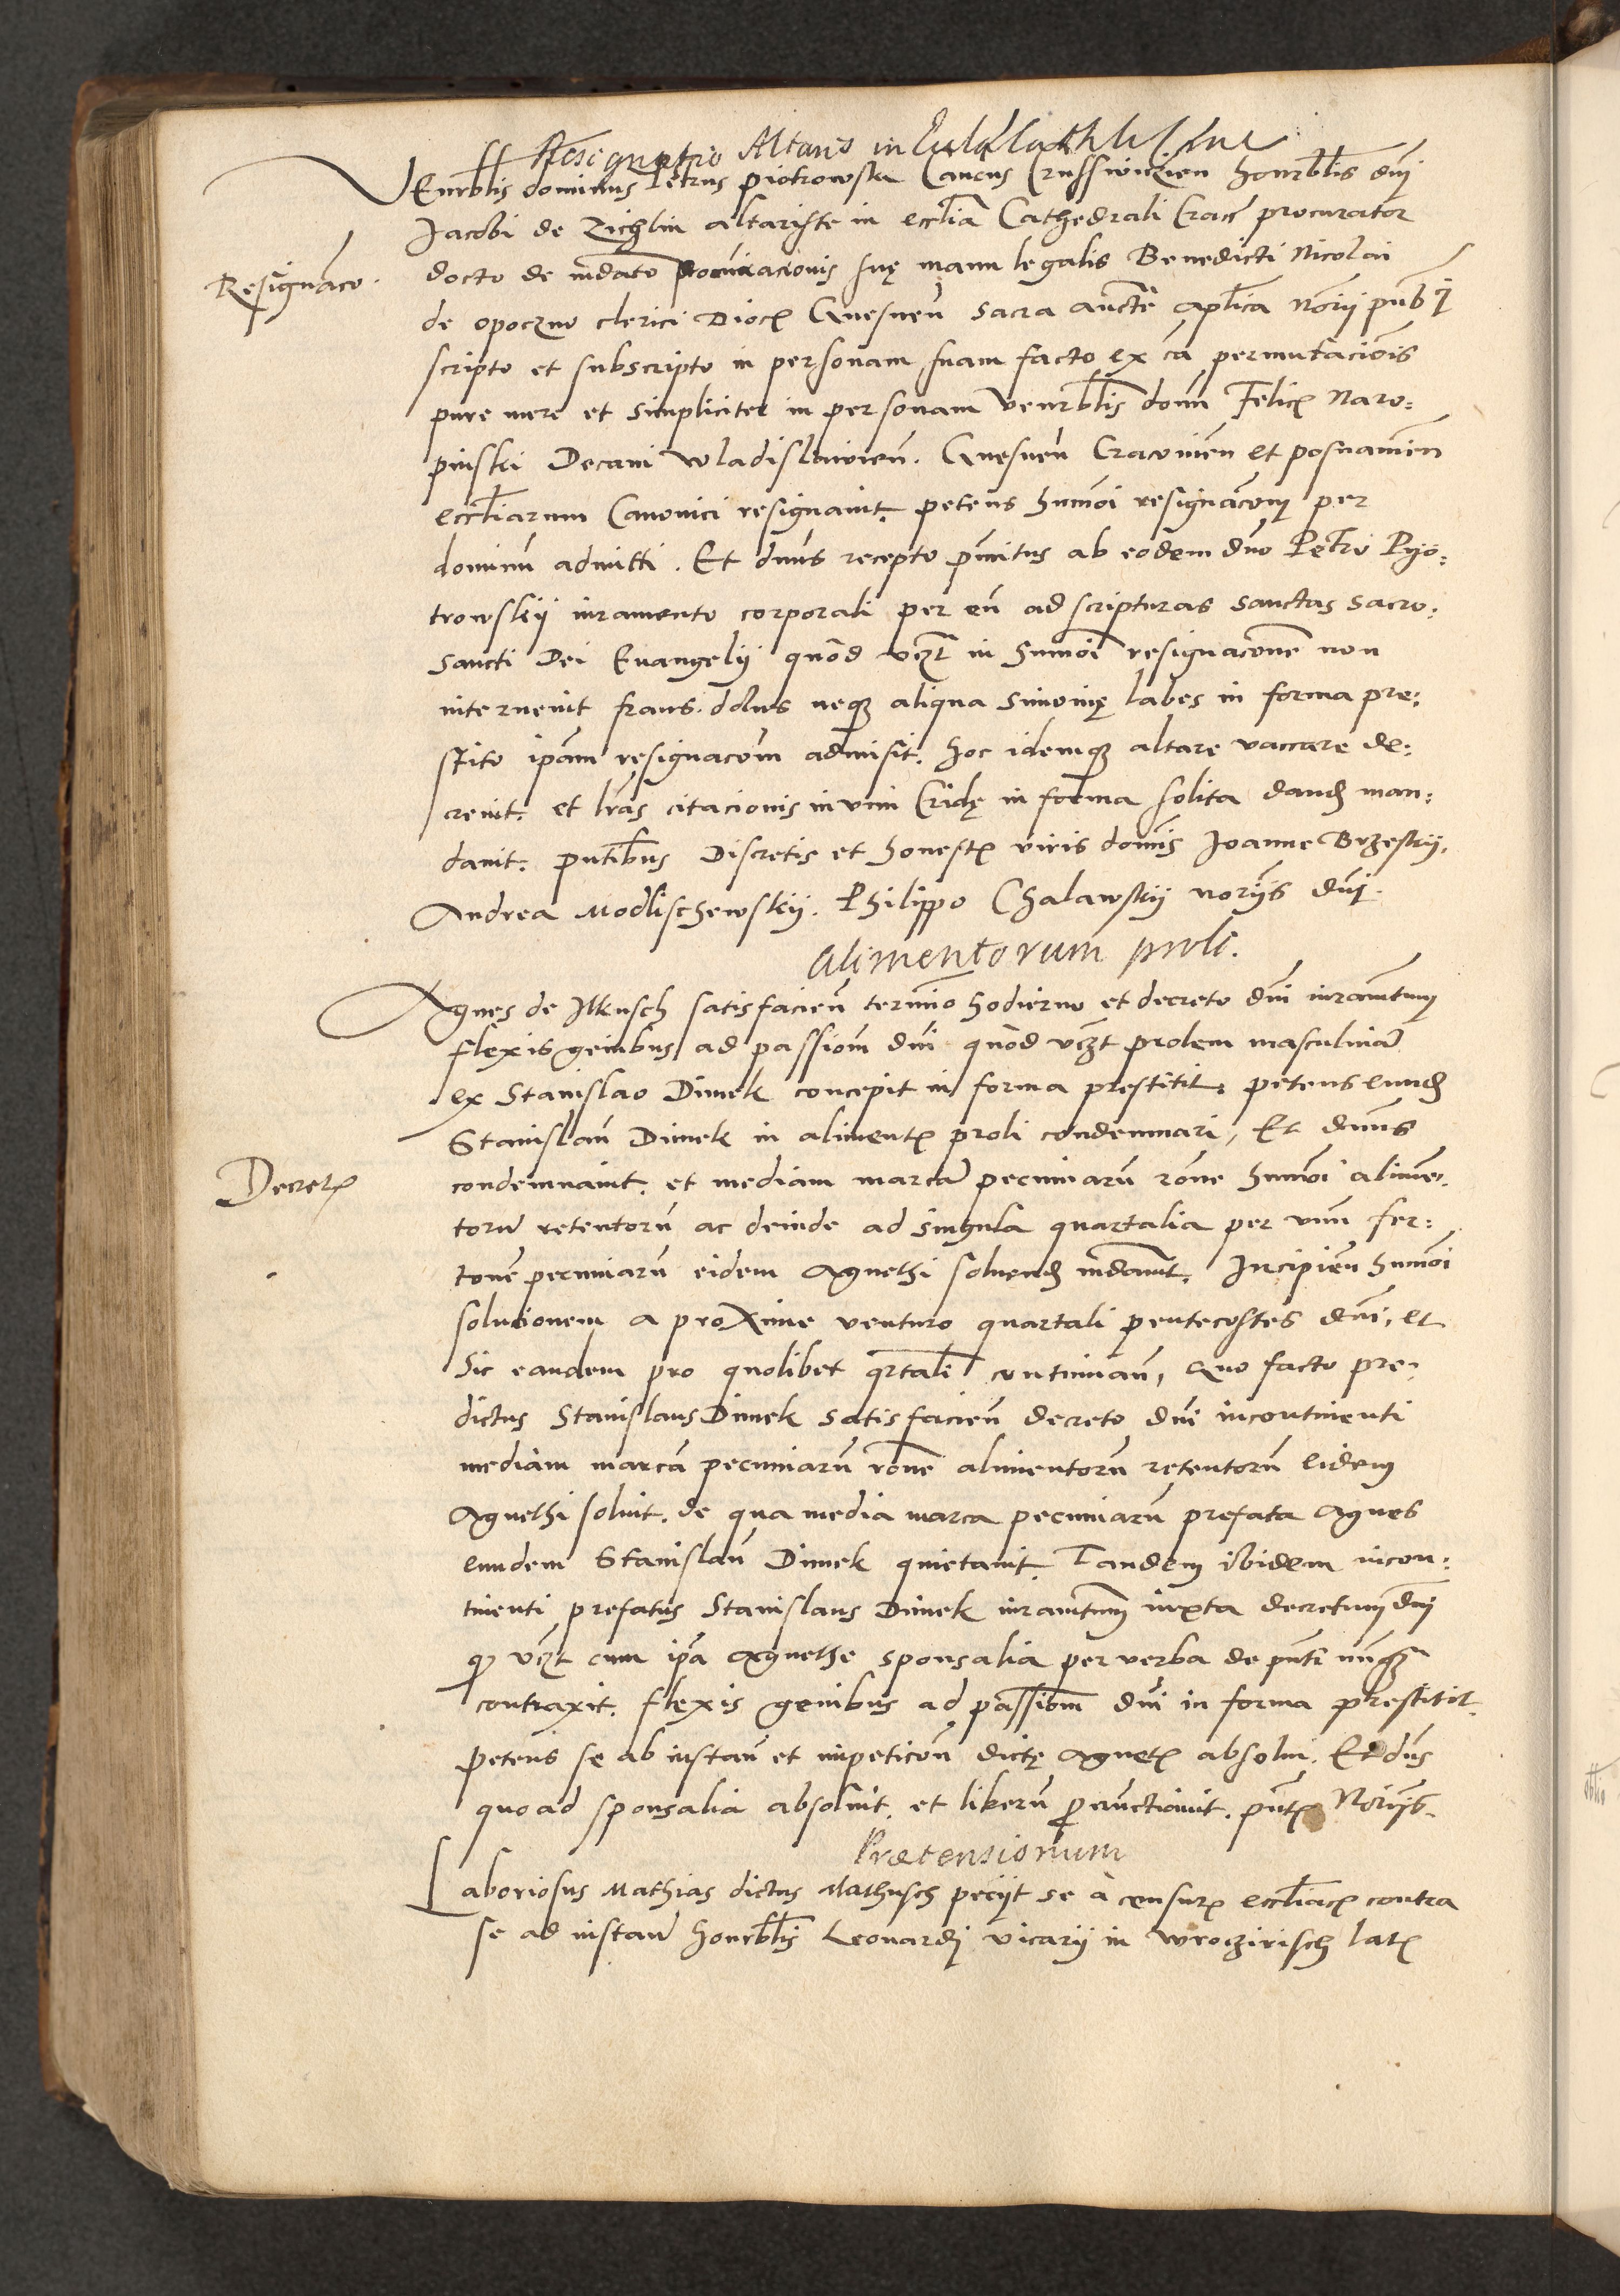 Resignatio Altaris in
VEnerblis dominus Petrus Piotrowski Cancus Crusswiczien honorblis dni
Jacobi de Zichlin altariste in ecclia Cathedrali Crac procurator
Resignaco.
docto de mdato procuracionis suę manu legalis Benedicti Nicolai
de opoczno clerici Dioc Gnesnen sacra aucte aplica Norij publi
scripto et subscripto in personam suam facto ex ca permutacionis
pure mere et simpliciter in personam venerblis domi Felic Naro:
pinski Decani Wladislavien. Gnesnen Cracovien et posnanien
eccliarum Canonici resignavit. petens humoi resignacom per
dominum admitti. Et dnus recepto primitus ab eodem dno Petro Pyo:
trowskij iuramento corporali per eum ad scripturas sanctas sacro:
sancti Dei Evangelij quod vczt in humoi resignacone non
intervenit fraus. dolus neque aliqua simonię labes in forma pre:
stito ipam resignacom admisit. hoc idemque altare vaccare de:
crevit. et lras citacionis in vim Cridę in forma solita dand man:
davit. pntibus Discretis et honest viris domis Joanne Brzeskij.
Andrea Modlischewskij. Philippo Chalawskij norijs dni.
Alimentorum proli.
Agnes de Ilkusch satisfacien termino hodierno et decreto dni iuramtum
flexis genibus ad passiom dni quod vczt prolem masculinam
ex Stanislao Dimek concepit in forma prestitit. petens eund
Stanislaum Dimek in aliment proli condemnari, Et dnus
Decret
condemnavit. et mediam marcam pecuniarum rone humoi alime:
torum retentorum ac deinde ad singula quartalia per unum fer:
tonem pecuniarum eidem Agnethi solvend mdavit. Incipien humoi
solucionem a proxime venturo quartali pentecostes dni, et
sic eandem pro quolibet qrtali continuan, Quo facto pre:
dictus Stanislaus Dimek satisfacien decreto dni incontinenti
mediam marcam pecuniarum rone alimentorum retentorum eidem
Agnethi solvit. de qua media marca pecuniarum prefata Agnes
eundem Stanislaum Dimek quietavit. Tandem ibidem incon:
tinenti prefatus Stanislaus Dimek iuramtum iuxta decretum dni
q vczt cum ipa Agnethe sponsalia per verba de pnti nunq
contraxit. flexis genibus ad passiom dni in forma prestitit.
petens se ab instan et impeticon dictę Agnet absolvi. Et dns
quoad sponsalia absolvit. et liberum pronunctiavit. pnt Norijs.
Prætensionum
Laboriosus Mathias dictus Mathusch petijt se à censur eccliac contra
se ad instan honorblis Leonardi vicarij in Wroczirisch lat